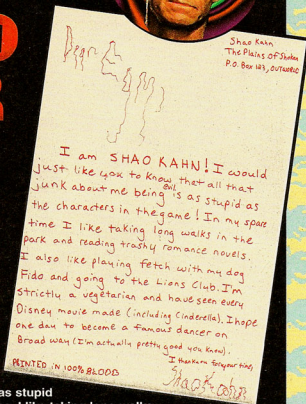 Shao Kahn
The Plains of Shokan
P.O. Box 123, OUTWORLD
Dear EGM,
I am SHAO KAHN! I would
just like you to know that all that
junk about me being evil is as stupid as
the characters in the game! In my spare
time I like taking long walks in the
park and reading trashy romance novels.
I also like playing fetch with my dog
Fido and going to the Lions Club. I'm
strictly a vegetarian and have seen every
Disney movie made (including Cinderella). I hope
one day to become a famous dancer on
Broadway (I'm actually pretty good you know).
I thank you for your time,
Shao Kahn
PRINTED IN 100% BLOOD
as stupid